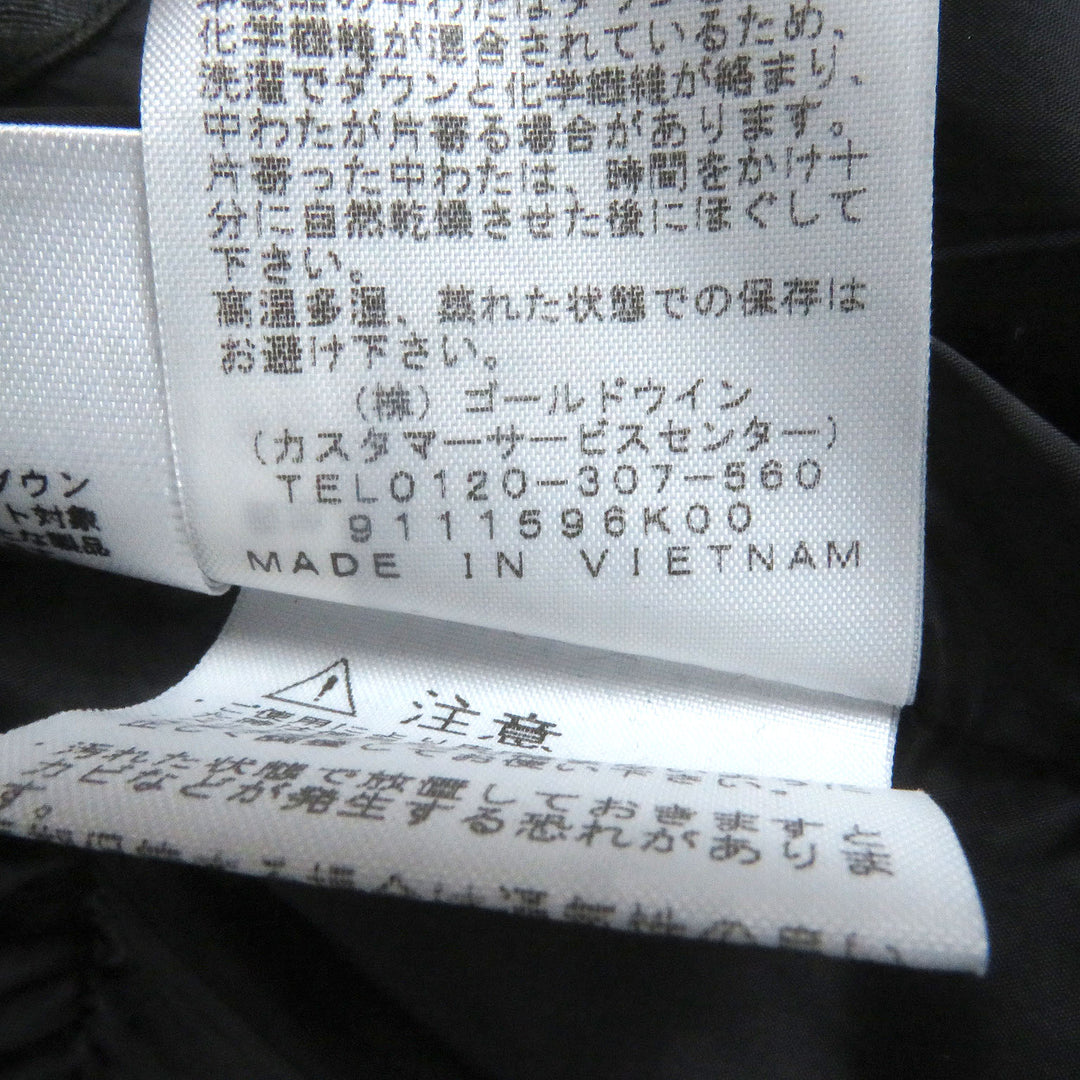 化学繊維が混合されているため、
洗濯でダウンと化学繊維が絡まり、
中わたが片寄る場合があります。
片寄った中わたは、時間をかけ十
分に自然乾燥させた後にほぐして
下さい。
高温多湿、蒸れた状態での保存は
お避け下さい。
(株) ゴールドウイン
(カスタマーサービスセンター)
TEL0120-307-560
9111596K00
MADE IN VIETNAM
ダウン
ト対象
た製品
注意
・汚れた状態で放置しておきますと
カビなどが発生する恐れがありま
す。
場合は通気性の良い